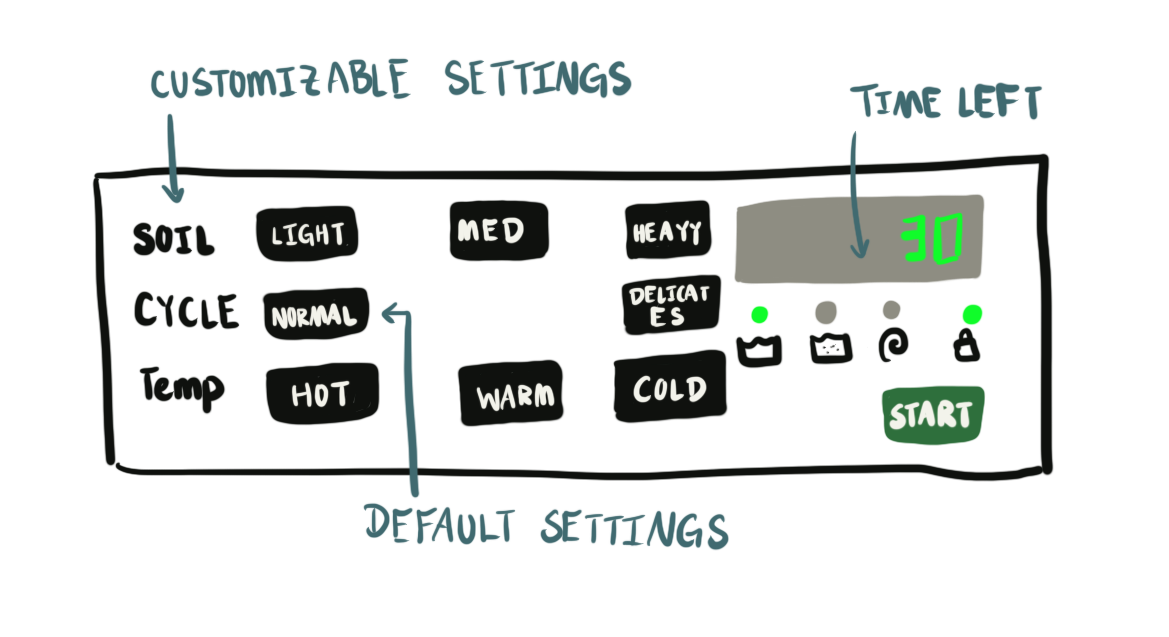 CUSTOMIZABLE SETTINGS
TIME LEFT
SOIL LIGHT MED HEAVY 30
CYCLE NORMAL DELICAT
ES
Temp HOT WARM COLD
START
DEFAULT SETTINGS